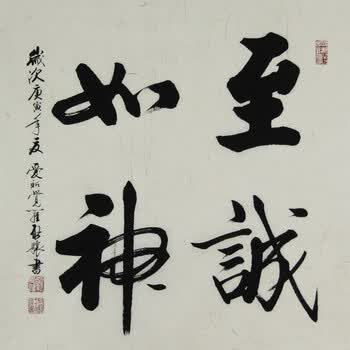 至誠
如神
歲次庚寅年夏愛新覺羅啟驤書